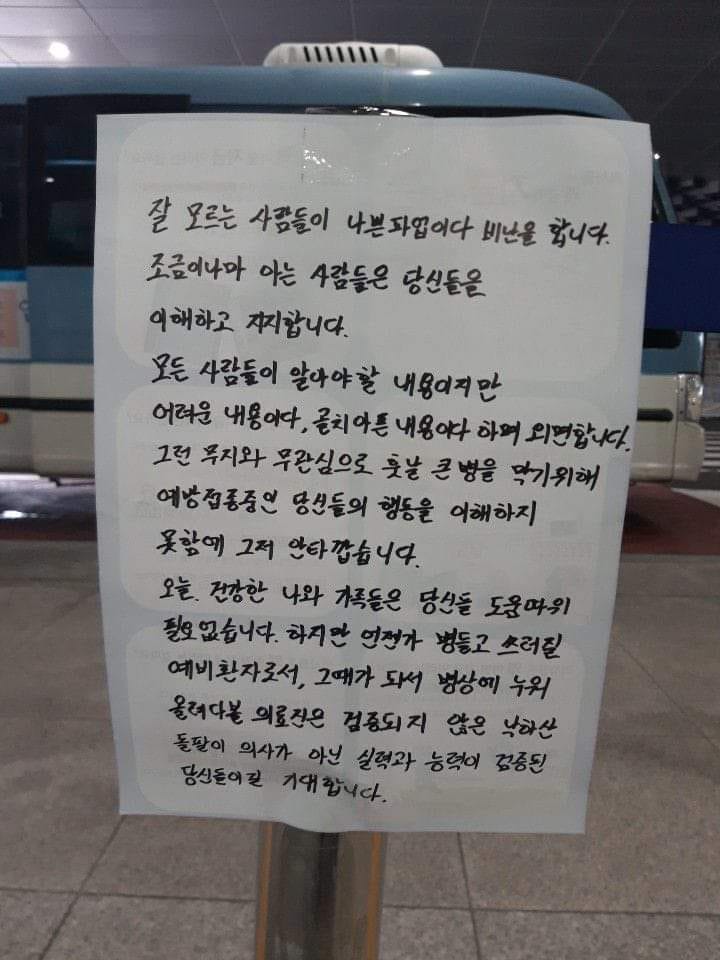 잘 모르는 사람들이 나쁜파업이다 비난을 합니다.
조금이나마 아는 사람들은 당신들을
이해하고 지지합니다.
모든 사람들이 알아야할 내용이지만
어려운 내용이다, 골치아픈 내용이다 하며 외면합니다.
그런 무지와 무관심으로 훗날 큰 병을 막기위해
예방접종중인 당신들의 행동을 이해하지
못함에 그저 안타깝습니다.
오늘. 건강한 나와 가족들은 당신들 도움따위
필요없습니다. 하지만 언젠가 병들고 쓰러질
예비환자로서, 그때가 되서 병상에 누워
올려다볼 의료진은 검증되지 않은 낙하산
돌팔이 의사가 아닌 실력과 능력이 검증된
당신들이길 기대합니다.